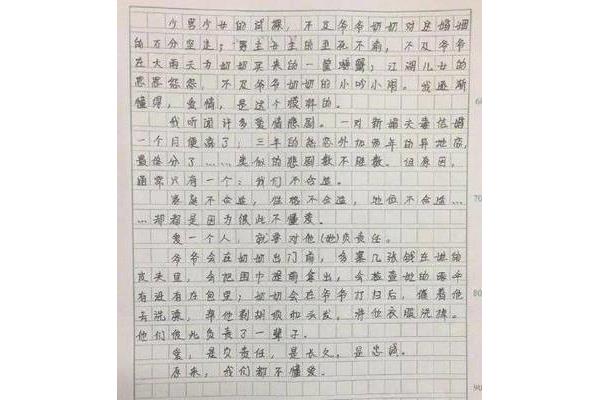 少男少女的试探，不及爷爷奶奶对这婚姻
的万分坚定；男主女主的至死不渝，不及爷爷
在大雨天为奶奶买来的一筐螃蟹；江湖儿女的
恩恩怨怨，不及爷爷奶奶的小吵小闹。我逐渐
懂得，爱情，是这个模样的。
我听闻许多爱情悲剧。一对新婚夫妻结婚
一个月便离了；三年的热恋外加两年的异地恋，
最终分了……类似的悲剧数不胜数。但原因，
通常只有一个：我们不合适。
家庭不合适，性格不合适，地位不合适……
……却都是因为彼此不懂爱。
爱一个人，就要对他(她)负责任。
爷爷会在奶奶出门前，多塞几张钱在她的
皮夹里，会把围巾提前拿出，会检查她的
有没有在包里；奶奶会在爷爷打扫后，催着他
去洗澡，帮他剃胡须和头发。将他衣服洗掉。
他们彼此负责了一辈子。
爱，是负责任，是长久，是忠诚。
原来，我们都不懂爱。
70
80
90